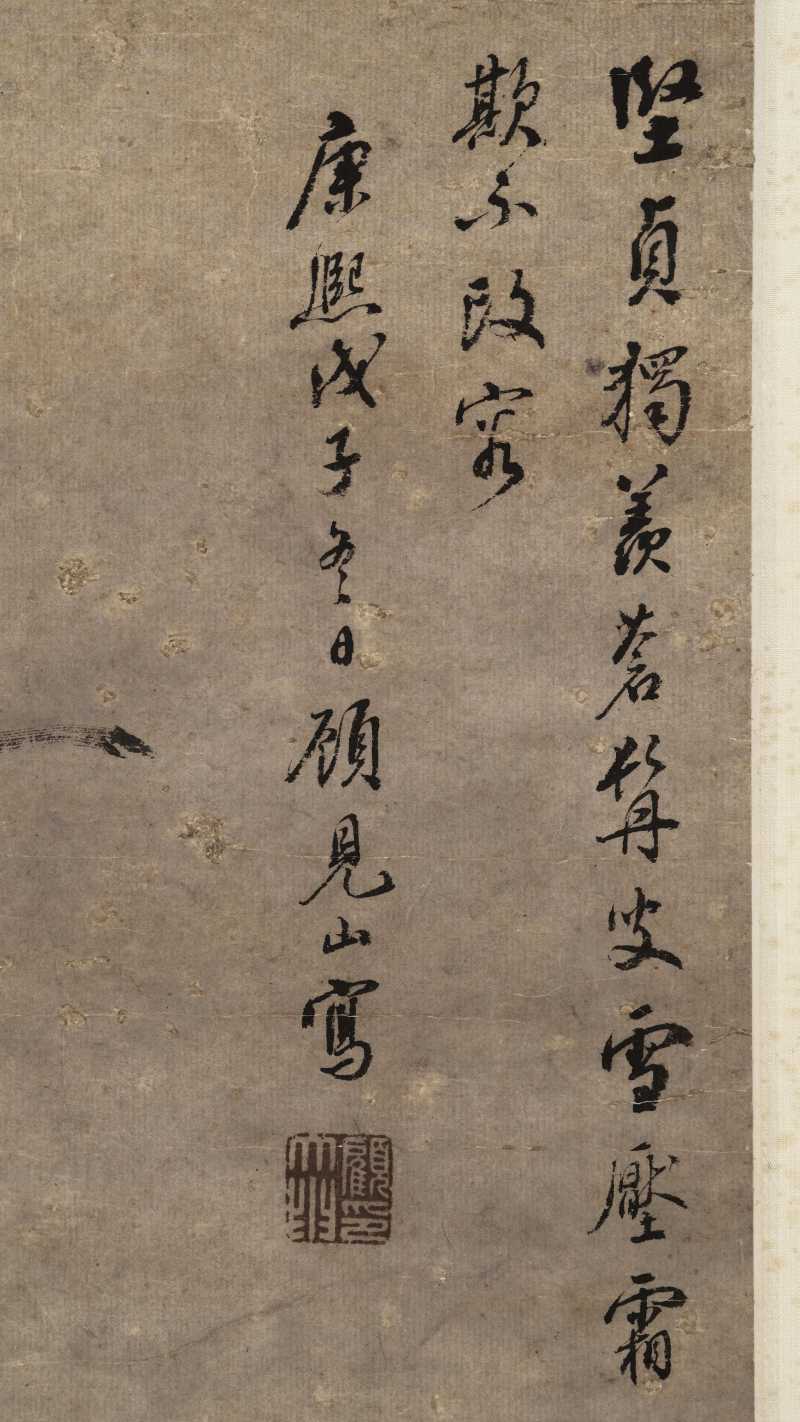 堅貞獨羨蒼髯叟雪壓霜
欺不改容
康熙戊子冬日顧見山寫